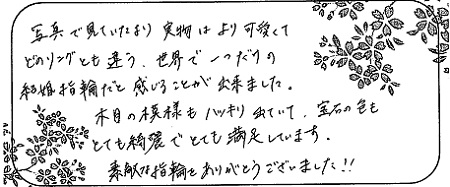 写真で見ていたより実物はより可愛くて
どのリングとも違う、世界で一つだけの
結婚指輪だと感じることが出来ました。
木目の模様もハッキリ出ていて、宝石の色も
とても綺麗でとても満足しています。
素敵な指輪をありがとうございました!!